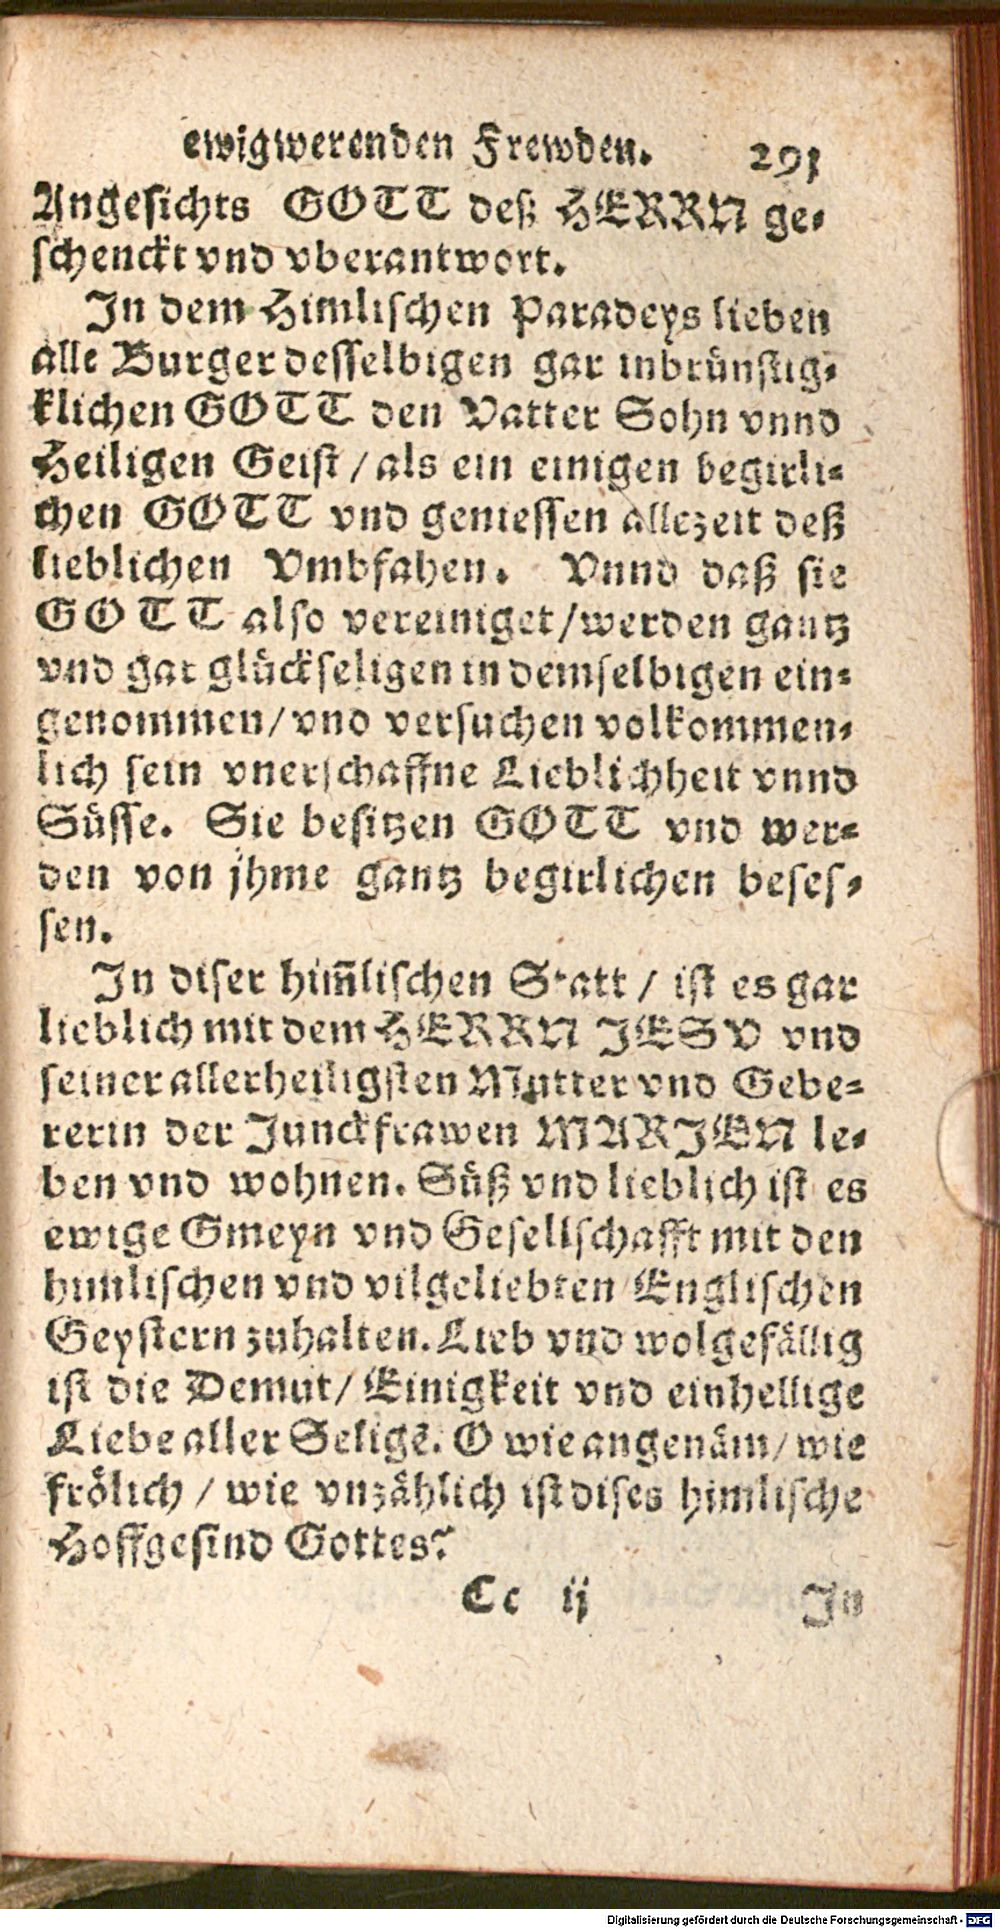 ewigwerenden Frewden. 291
Angesichts GOTT deß HERRN ge-
schenckt vnd vberantwort.
In dem Himlischen Paradeys lieben
alle Burger desselbigen gar inbrünstig-
klichen GOTT den Vatter Sohn vnnd
Heiligen Geist / als ein einigen begirli-
chen GOTT vnd geniessen allezeit deß
lieblichen Vmbfahen. Vnnd daß sie
GOTT also vereiniget / werden gantz
vnd gar glückseligen in demselbigen ein-
genommen / vnd versuchen volkommen-
lich sein vnerschaffne Lieblichheit vnnd
Süsse. Sie besitzen GOTT vnd wer-
den von jhme gantz begirlichen beses-
sen.
In diser him̄lischen Statt / ist es gar
lieblich mit dem HERRN JESV vnd
seiner allerheiligsten Mutter vnd Gebe-
rerin der Junckfrawen MARJEN le-
ben vnd wohnen. Süß vnd lieblich ist es
ewige Gmeyn vnd Gesellschafft mit den
himlischen vnd vilgeliebten Englischen
Geystern zuhalten. Lieb vnd wolgefällig
ist die Demut / Einigkeit vnd einhellige
Liebe aller Seligẽ. O wie angenäm / wie
frölich / wie vnzählich ist dises himlische
Hoffgesind Gottes?
Cc ij In
Digitalisierung gefördert durch die Deutsche Forschungsgemeinschaft - DFG